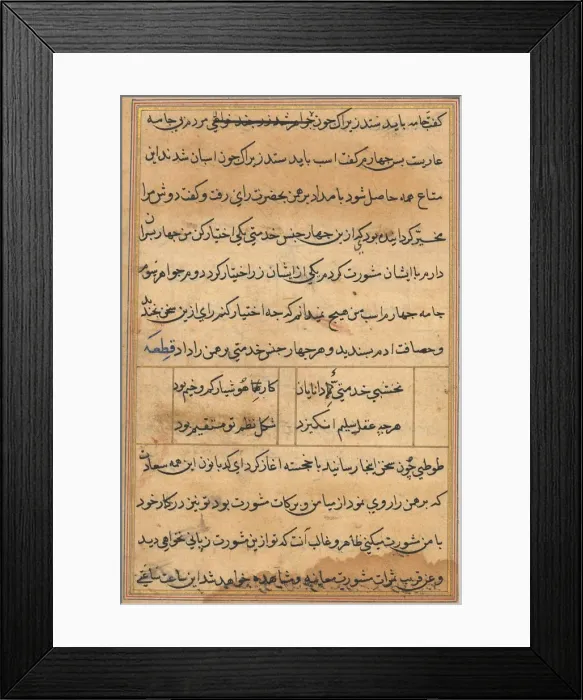 کفت جامه باید ستد زیراک چون جواهر شد زر شد نواحی مردم بی جامه
عاریست پس چهارم کفت اسب باید ستد زیراک چون اسبان شدند این
متاع همه حاصل شود بامداد برهمن بحضرت رای رفت و کفت دوش مرا
مخیر کردانیده بودی کی ازین چهار جنس خدمتی یکی اختیار کن من چهار پسران
دارم با ایشان مشورت کردم یکی از ایشان زر اختیار کرد دوم جواهر سوم
جامه چهارم اسب من هیچ نمیدانم که چه اختیار کنم رای ازین سخن بخندید
و حصافت او بپسندید و هر چهار جنس خدمتی برهمن را داد قطعه
نخشبی خدمتی دانایان کارهای هوشیار کم وخیم بود
هرچه عقل سلیم انکیزد شکل نظم تو مستقیم بود
طوطی چون سخن اینجا رسانید با خجسته اغاز کرد ای کدبانو این همه سعادت
که برهمن را روی نمود از میامن و برکات مشورت بود تو نیز در کار خود
با من مشورت میکنی ظاهر و غالب آنت که تو ازین مشورت زیانی نخواهی دید
و عن قریب ثمرات مشورت معاینه و مشاهده خواهد شد این ساعت ساعتی